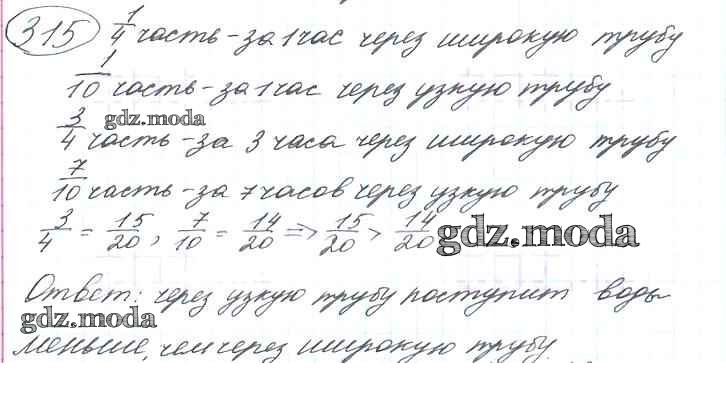 315 1/4 часть - за 1 час через широкую трубу
1/10 часть - за 1 час через узкую трубу
gdz.moda
3/4 часть - за 3 часа через широкую трубу
7/10 часть - за 7 часов через узкую трубу
3/4 = 15/20, 7/10 = 14/20 => 15/20 > 14/20 gdz.moda
Ответ: через узкую трубу поступит воды
gdz.moda
меньше, чем через широкую трубу.